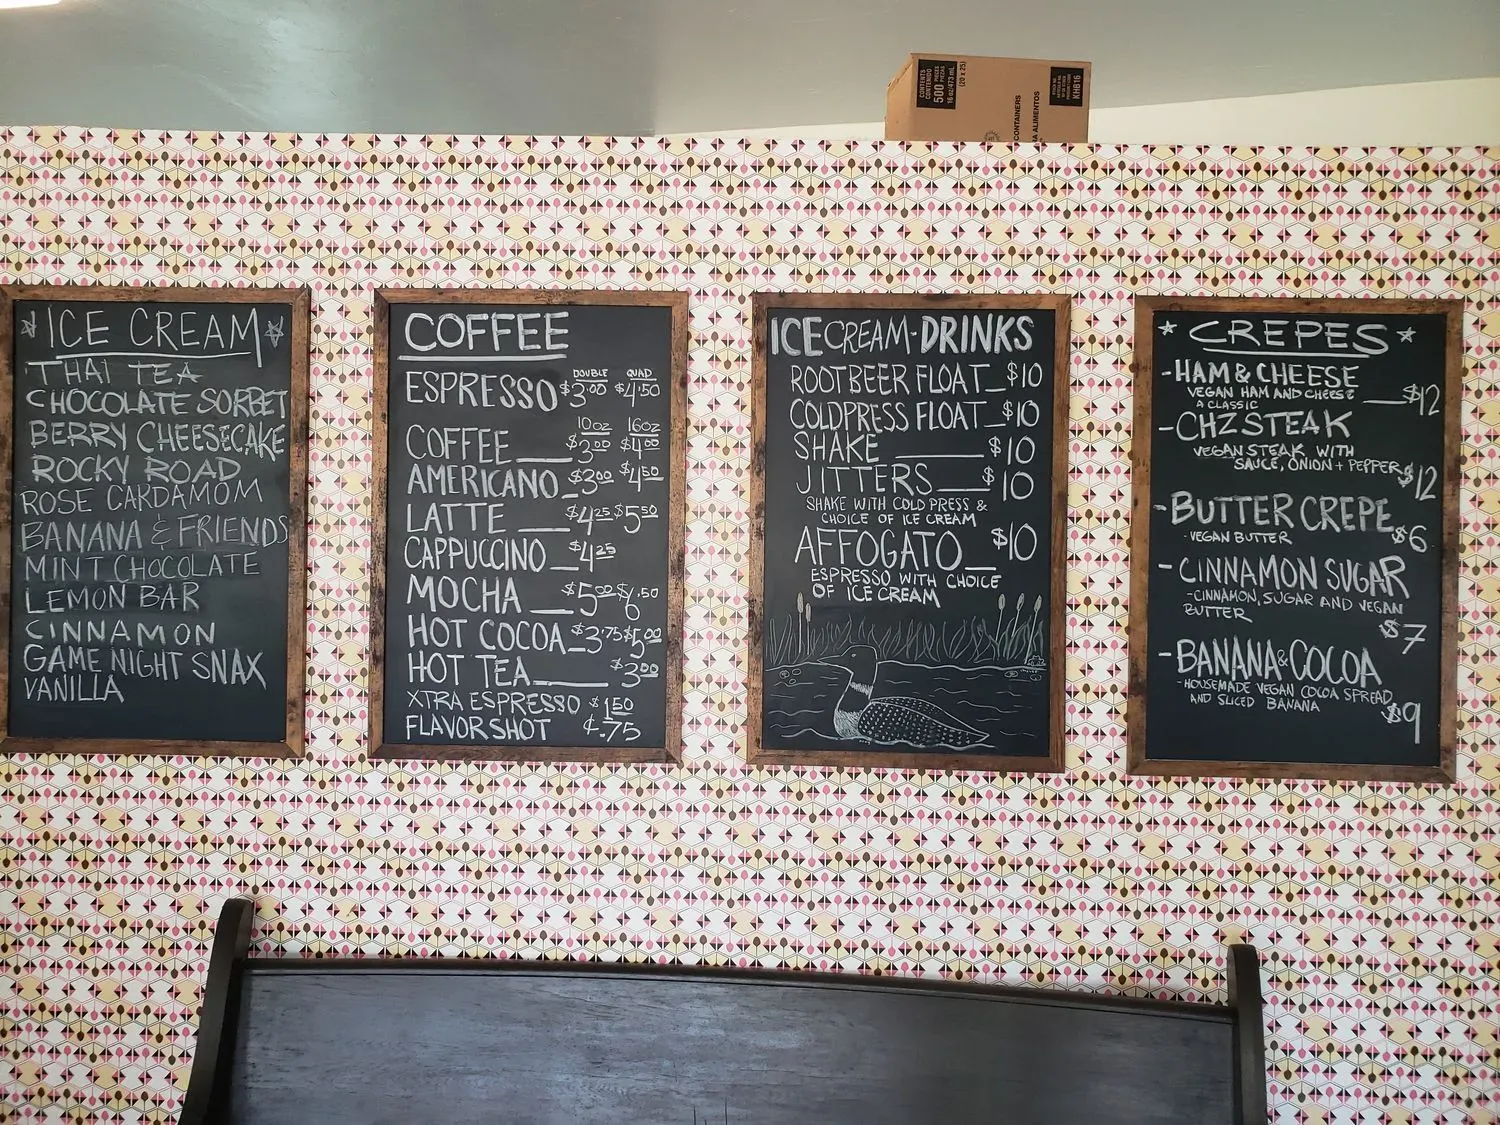 CONTENTS
CONTENIDO
500 PIECES
PIEZAS
16 oz/473 mL
(20 x 25)
CONTAINERS
A ALIMENTOS
KH816
ICE CREAM
THAI TEA
CHOCOLATE SORBET
BERRY CHEESECAKE
ROCKY ROAD
ROSE CARDAMOM
BANANA & FRIENDS
MINT CHOCOLATE
LEMON BAR
CINNAMON
GAME NIGHT SNAX
VANILLA
COFFEE
DOUBLE QUAD
ESPRESSO $3.00 $4.50
10oz 16oz
COFFEE $3.00 $4.00
AMERICANO $3.00 $4.50
LATTE $4.25 $5.50
CAPPUCCINO $4.25
MOCHA $5.00 $6.50
HOT COCOA $3.75 $5.00
HOT TEA $3.00
XTRA ESPRESSO $1.50
FLAVOR SHOT ¢.75
ICE CREAM-DRINKS
ROOTBEER FLOAT $10
COLDPRESS FLOAT $10
SHAKE $10
JITTERS $10
SHAKE WITH COLD PRESS &
CHOICE OF ICE CREAM
AFFOGATO $10
ESPRESSO WITH CHOICE
OF ICE CREAM
CREPES
-HAM & CHEESE
VEGAN HAM AND CHEESE $12
A CLASSIC
-CHZ STEAK
VEGAN STEAK WITH
SAUCE, ONION + PEPPER $12
-BUTTER CREPE
-VEGAN BUTTER $6
-CINNAMON SUGAR
-CINNAMON, SUGAR AND VEGAN
BUTTER $7
-BANANA & COCOA
-HOUSEMADE VEGAN COCOA SPREAD
AND SLICED BANANA $9